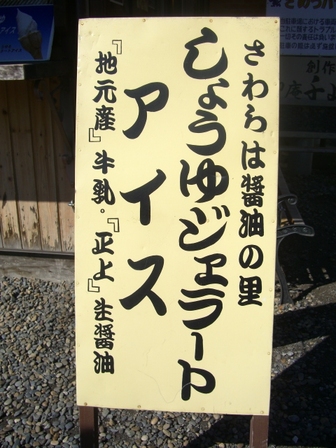 さわらは醤油の里
しょうゆジェラート
アイス
『地元産』牛乳・『正上』生醤油